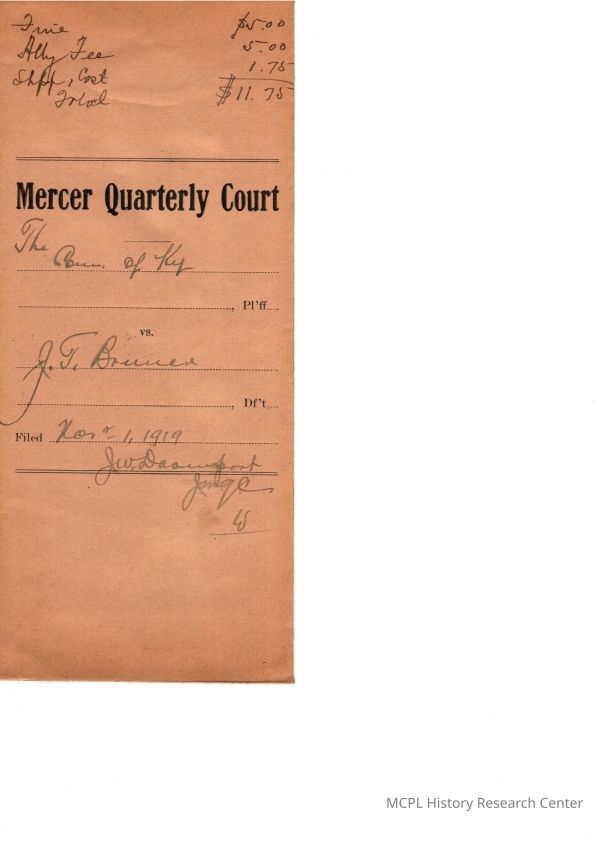 Fine $5.00
Atty Fee 5.00
Shff, Cost 1.75
Total $11.75
Mercer Quarterly Court
The
Com. of Ky
Pl'ff.
vs.
J. T. Bruner
Df't.
Filed Novr 1, 1919
J.W. Davenport
Judge
MCPL History Research Center